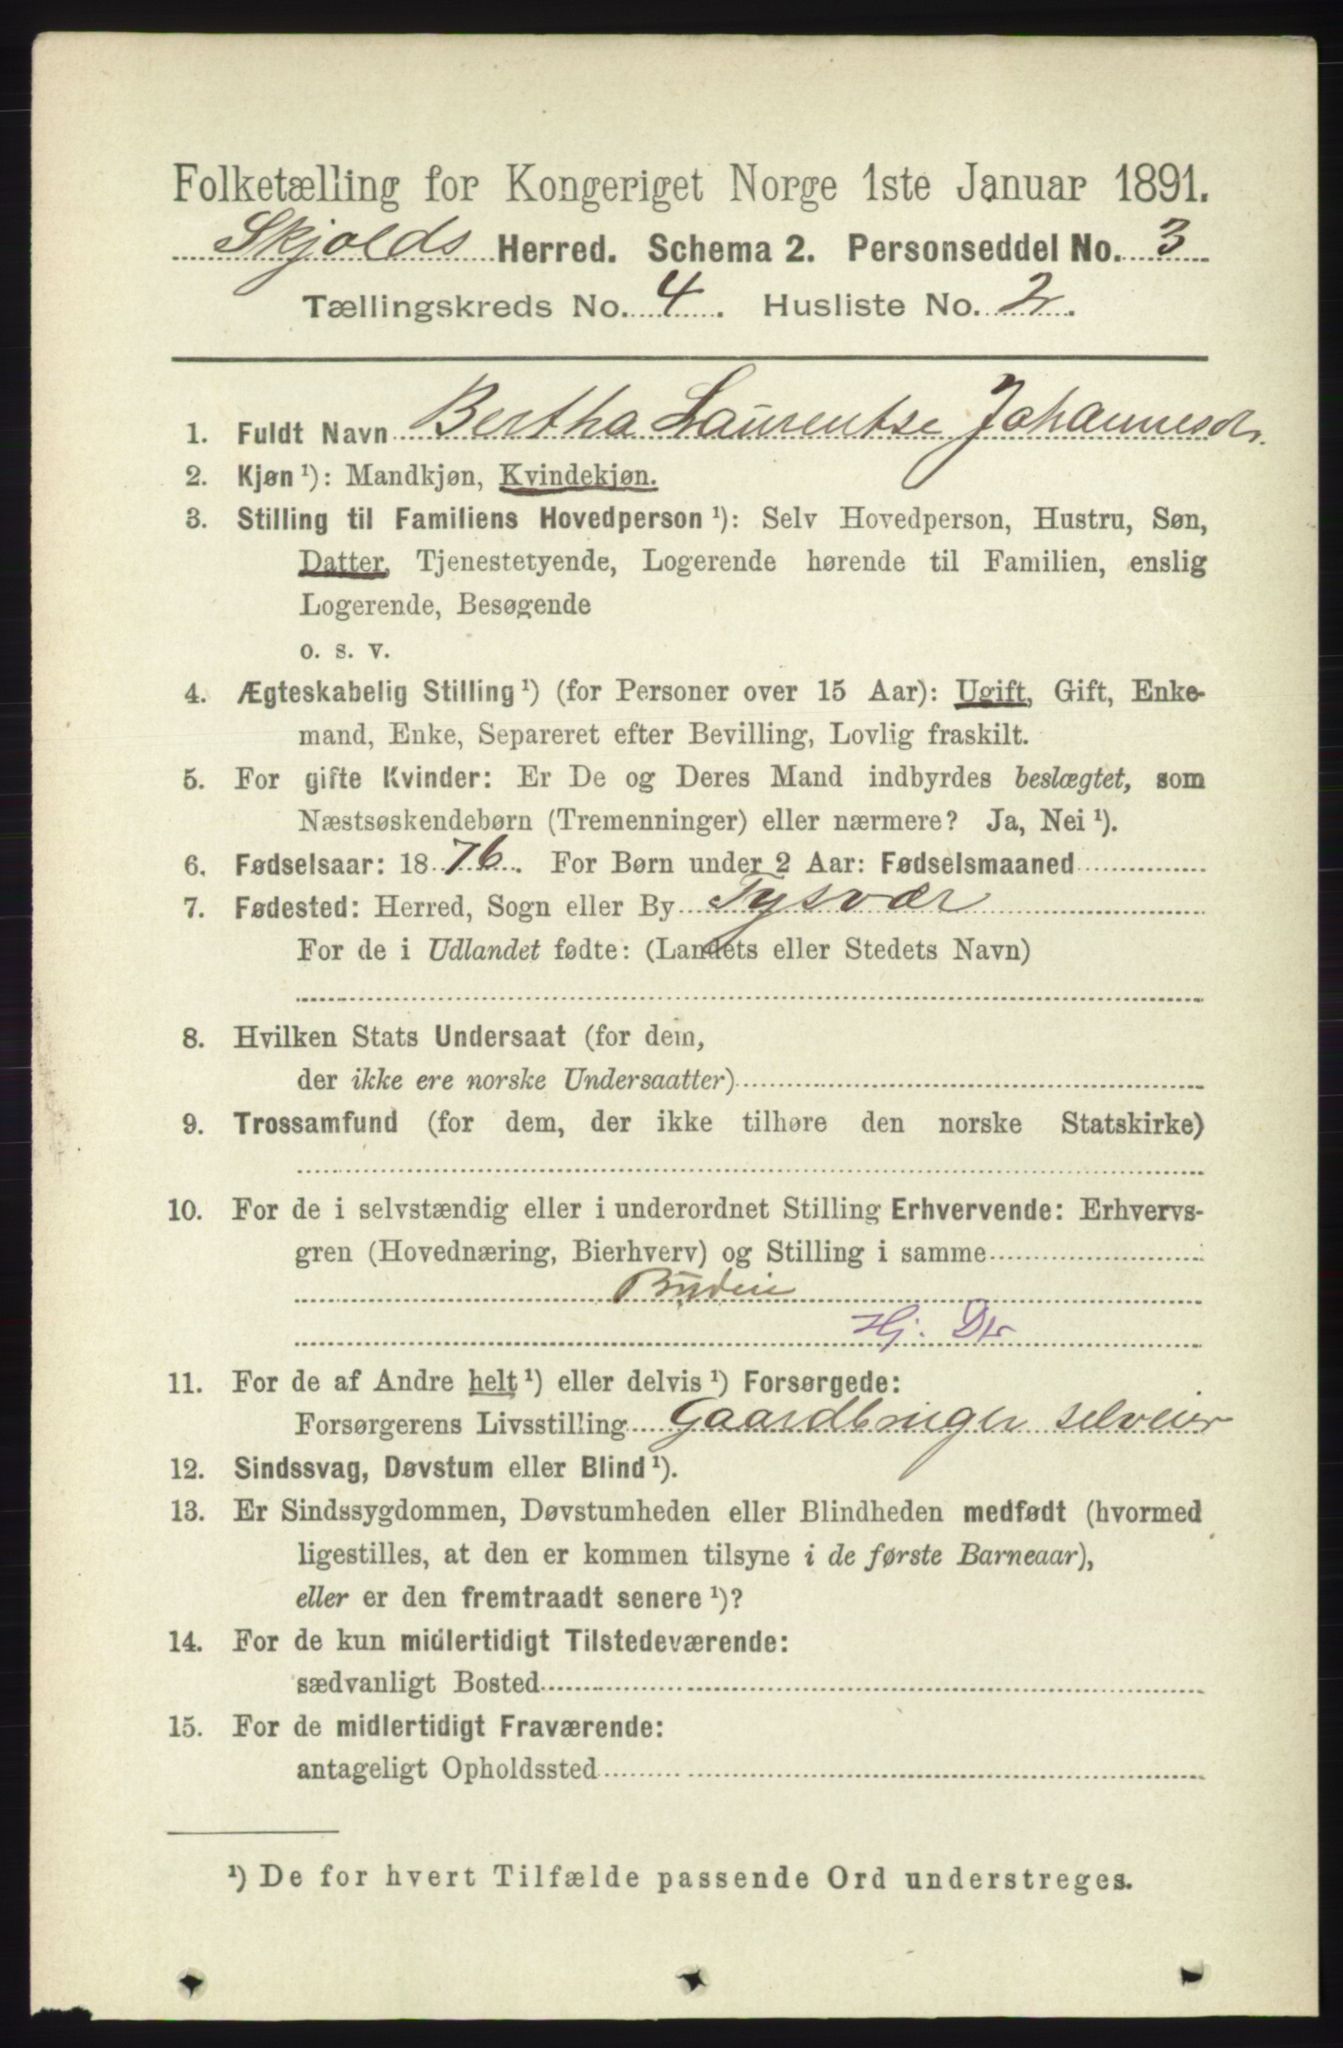 Folketælling for Kongeriget Norge 1ste Januar 1891.
Skjolds Herred. Schema 2. Personseddel No. 3
Tællingskreds No. 4. Husliste No. 2.
1. Fuldt Navn Bertha Laurentse Johannesdr.
2. Kjøn ¹): Mandkjøn, Kvindekjøn.
3. Stilling til Familiens Hovedperson ¹): Selv Hovedperson, Hustru, Søn,
Datter, Tjenestetyende, Logerende hørende til Familien, enslig
Logerende, Besøgende
o. s. v.
4. Ægteskabelig Stilling ¹) (for Personer over 15 Aar): Ugift, Gift, Enke-
mand, Enke, Separeret efter Bevilling, Lovlig fraskilt.
5. For gifte Kvinder: Er De og Deres Mand indbyrdes beslægtet, som
Næstsøskendebørn (Tremenninger) eller nærmere? Ja, Nei ¹).
6. Fødselsaar: 1876. For Børn under 2 Aar: Fødselsmaaned
7. Fødested: Herred, Sogn eller By Tysvær
For de i Udlandet fødte: (Landets eller Stedets Navn)
8. Hvilken Stats Undersaat (for dem,
der ikke ere norske Undersaatter)
9. Trossamfund (for dem, der ikke tilhøre den norske Statskirke)
10. For de i selvstændig eller i underordnet Stilling Erhvervende: Erhvervs-
gren (Hovednæring, Bierhverv) og Stilling i samme
Budeie
Hj. Dtr
11. For de af Andre helt ¹) eller delvis ¹) Forsørgede:
Forsørgerens Livsstilling Gaardbruger selveier
12. Sindssvag, Døvstum eller Blind ¹).
13. Er Sindssygdommen, Døvstumheden eller Blindheden medfødt (hvormed
ligestilles, at den er kommen tilsyne i de første Barneaar),
eller er den fremtraadt senere ¹)?
14. For de kun midlertidigt Tilstedeværende:
sædvanligt Bosted
15. For de midlertidigt Fraværende:
antageligt Opholdssted
¹) De for hvert Tilfælde passende Ord understreges.